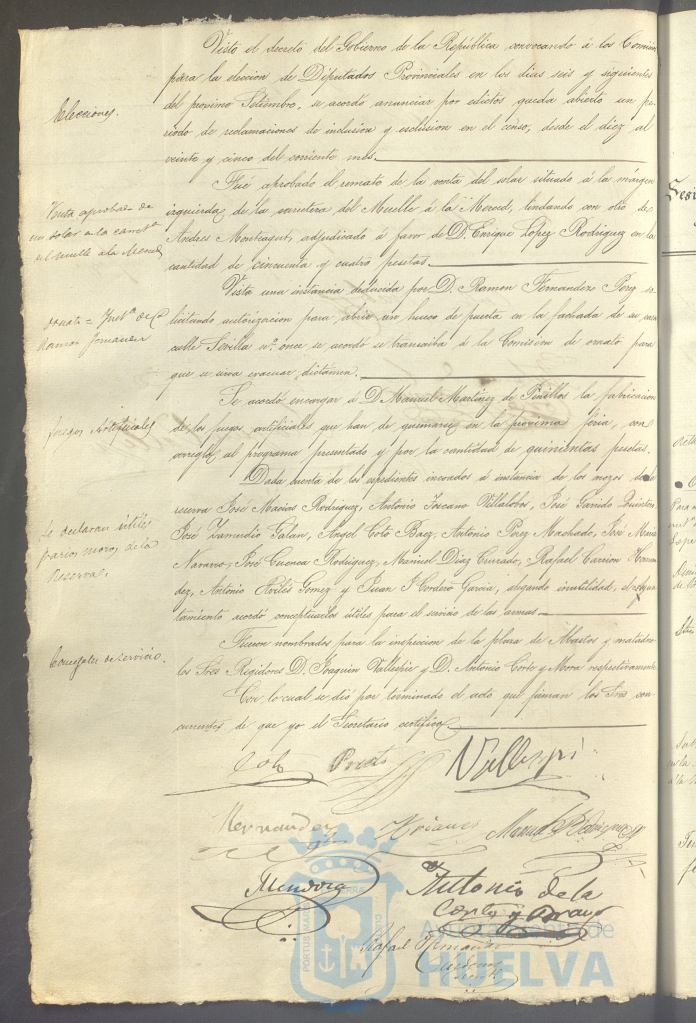 Visto el decreto del Gobierno de la República convocando á los Comicios
para la eleccion de Diputados Provinciales en los dias seis y siguientes
Elecciones.
del procsimo Setiembre, se acordó anunciar por edictos queda abierto un pe-
riodo de reclamaciones de inclusion y esclusion en el censo, desde el diez al
veinte y cinco del corriente mes.
Fué aprobado el remate de la venta del solar situado á la márgen
Venta aprobada de
izquierda de la carretera del Muelle á la Merced, lindando con otro de
un solar a la carret.ª
Andres Montagut, adjudicado á favor de D. Enrique Lopez Rodriguez en la
del muelle a la Merced
cantidad de cincuenta y cuatro pesetas.
Vista una instancia deducida por D. Ramon Fernandez Perez so-
licitando autorizacion para abrir un hueco de puerta en la fachada de su casa
Ornato = Inst.ª de D.
Ramon Fernandez
calle Sevilla nº once se acordó se transcriba á la Comision de ornato para
que se sirva evacuar dictámen.
Se acordó encargar á D. Manuel Martinez de Pinillos la fabricacion
Fuegos Artificiales
de los fuegos artificiales que han de quemarse en la procsima feria, con
arreglo al programa presentado y por la cantidad de quinientas pesetas.
Dada cuenta de los espedientes incoados á instancia de los mozos de la
reserva José Macias Rodriguez, Antonio Toscano Villalobos, José Garrido Quintero,
Se declaran útiles
José Zamudio Galan, Angel Coto Baez, Antonio Perez Machado, José Maria
varios mozos de la
Navarro, José Cuenca Rodriguez, Manuel Diaz Currado, Rafael Carrion Hernan-
Reserva.
dez, Antonio Aviles Gomez y Juan J. Cordero Garcia, alegando inutilidad, el Ayun-
tamiento acordó conceptuarlos útiles para el servicio de las armas.
Fueron nombrados para la inspeccion de la plaza de Abastos y matadero
Concejales de servicio.
los Sres Regidores D. Joaquin Vallespir y D. Antonio Corte y Mora respectivamente
Con lo cual se dió por terminado el acto que firman los Sres con-
currentes de que yo el Secretario certifico.
Coto Prieto Vallespir
Hernandez Manuel Rodriguez
Mendoza Antonio de la
Corte y
Rafael
PORTUS MARIS ET TERRAE CUSTODIO
Ayuntamiento de
HUELVA